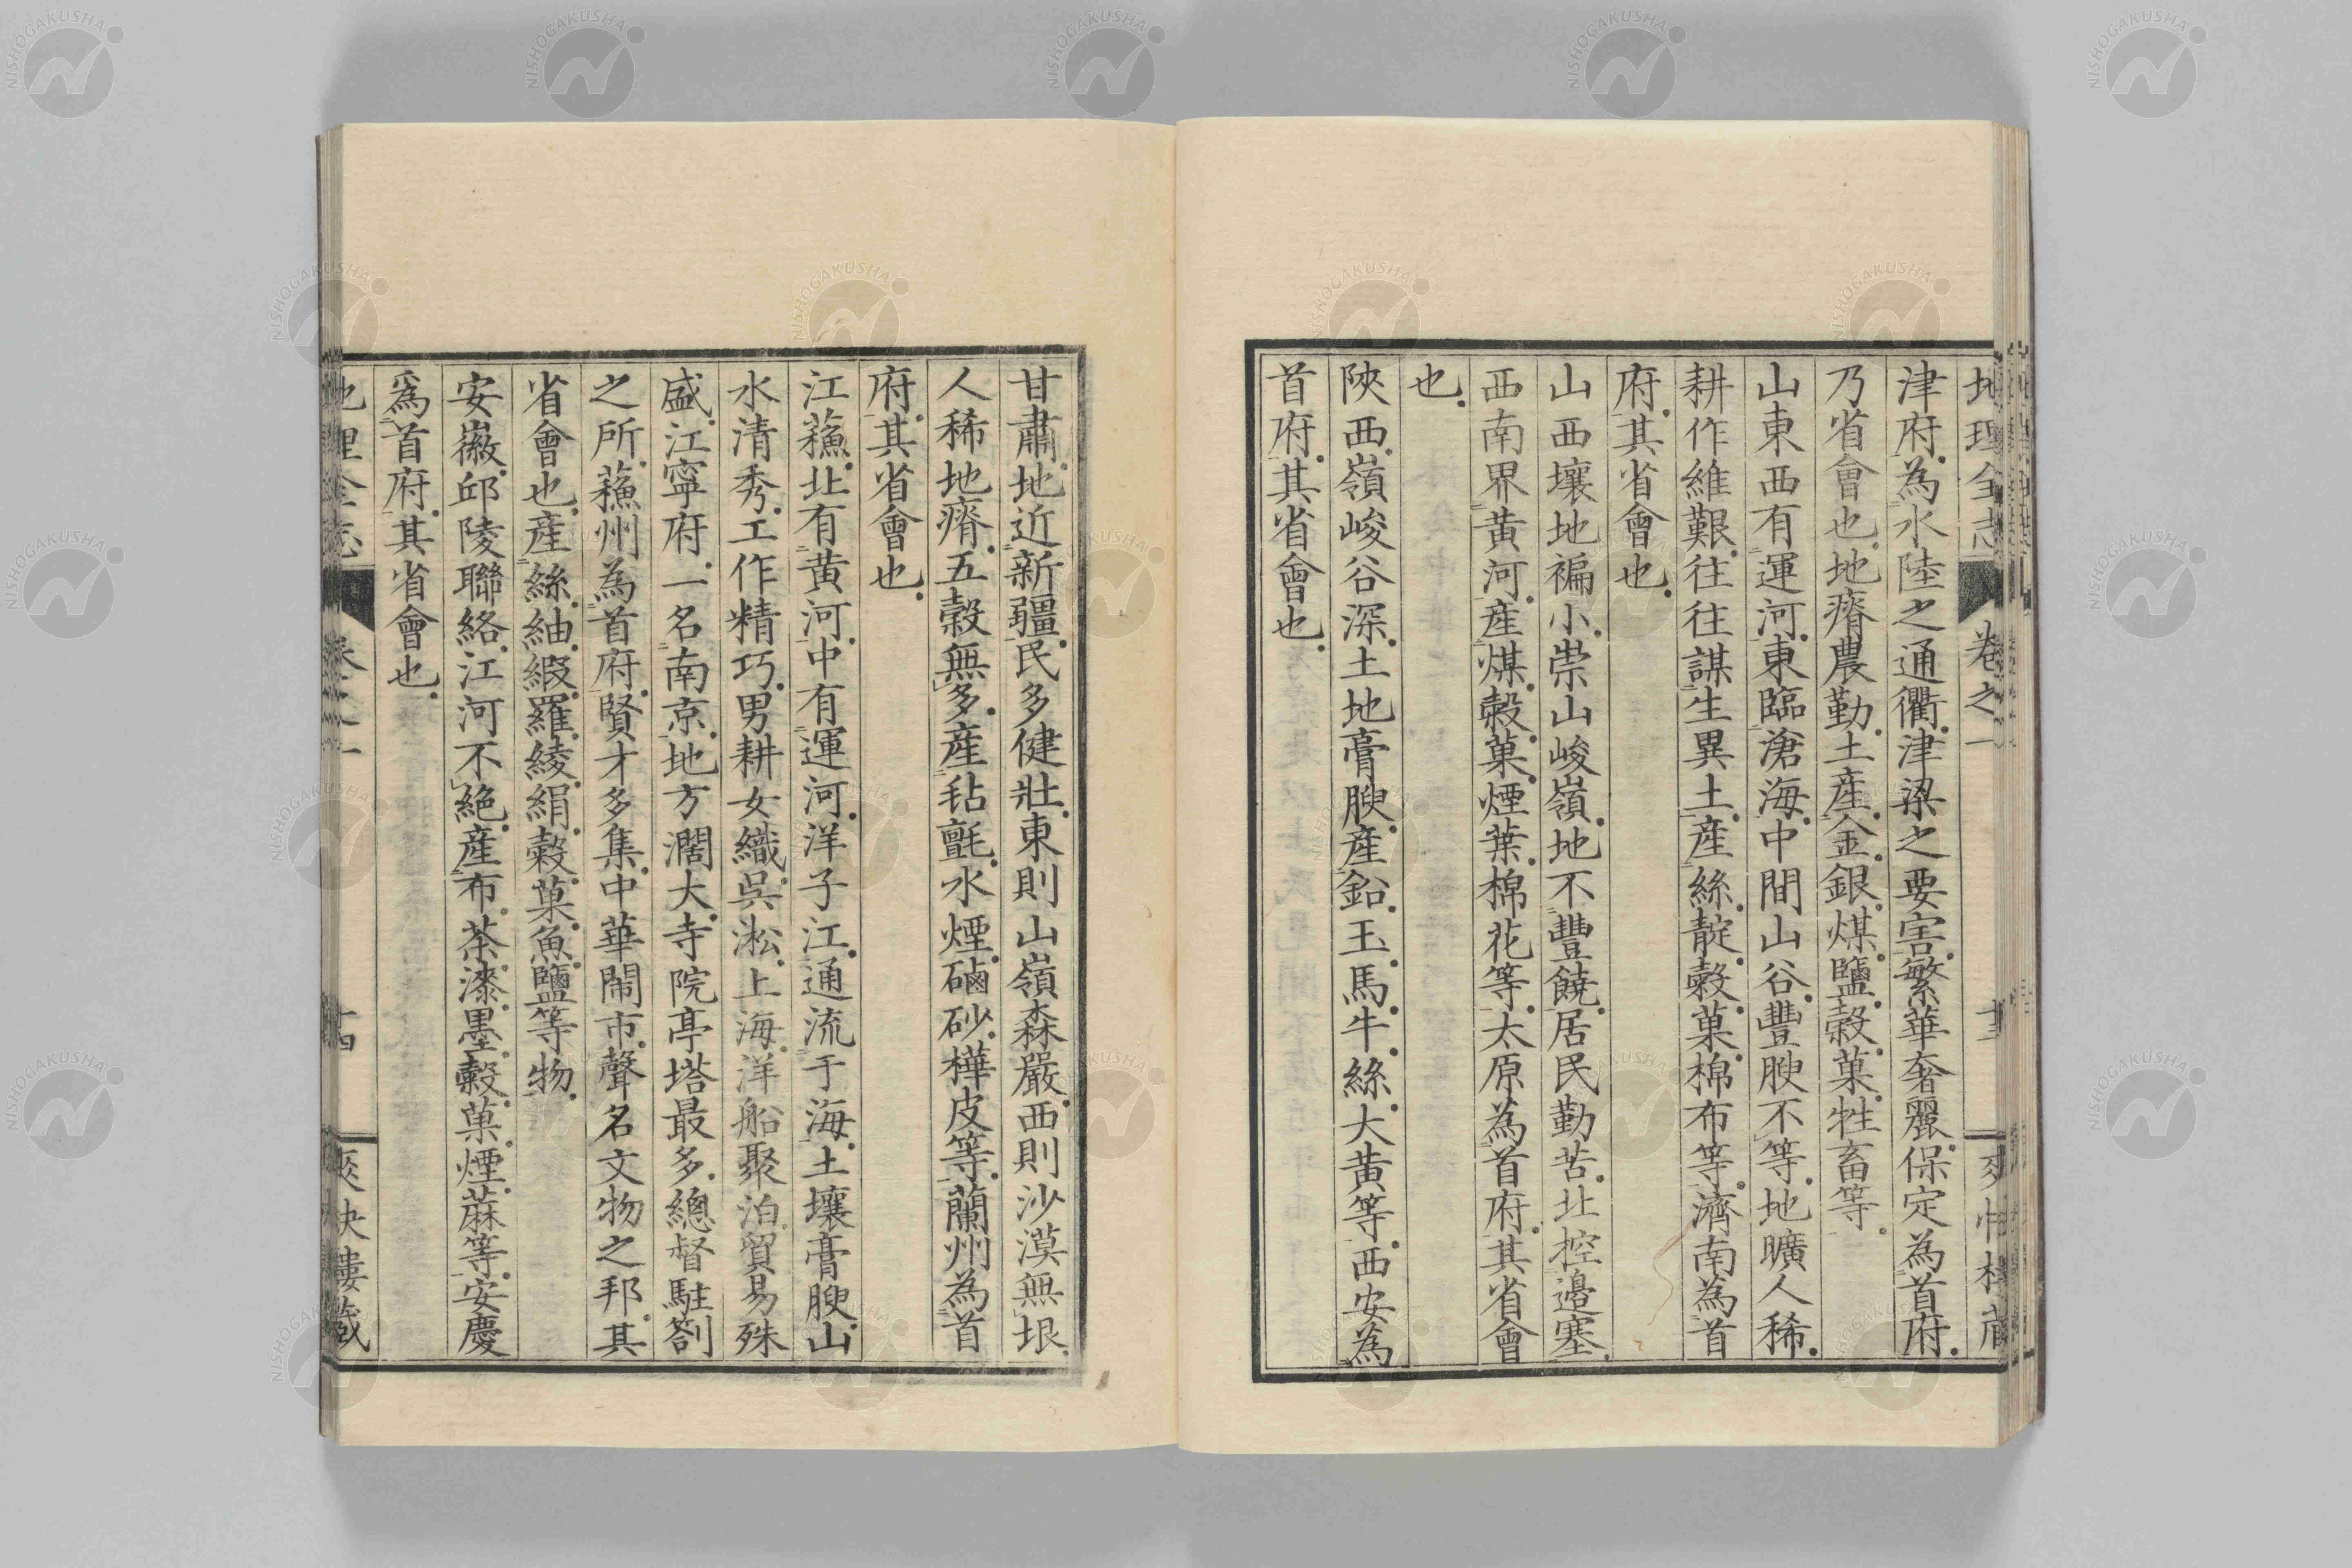 地理全志 卷之一 十三 爽快樓藏
津府.為水陸之通衢.津梁之要害.繁華奢麗.保定為首府.
乃省會也.地瘠農勤.土産金.銀.煤.鹽.穀.菓.牲畜等.
山東西有運河.東臨滄海.中間山谷.豐腴不等.地曠人稀.
耕作維艱.往往謀生異土.産絲.靛.穀.菓.棉布等.濟南為首
府.其省會也.
山西壤地褊小.崇山峻嶺.地不豐饒.居民勤苦.北控邊塞.
西南界黄河.産煤.穀.菓.煙葉.棉花等.太原為首府.其省會
也.
陜西.嶺峻谷深.土地膏腴.産鉛.玉.馬.牛.絲.大黄等.西安為
首府.其省會也.
甘肅.地近新疆.民多健壯.東則山嶺森嚴.西則沙漠無垠.
人稀地瘠.五穀無多.産毡氈.水煙.磠砂.樺皮等.蘭州為首
府.其省會也.
江蘓.北有黄河.中有運河.洋子江.通流于海.土壤膏腴.山
水清秀.工作精巧.男耕女織.吳淞.上海.洋船聚泊.貿易殊
盛.江寧府.一名南京.地方濶大.寺院亭塔最多.總督駐劄
之所.蘓州為首府.賢才多集.中華鬧市.聲名文物之邦.其
省會也.産絲.紬.緞.羅.綾.絹.穀.菓.魚.鹽等物.
安徽.邱陵聯絡.江河不絶.産布.茶.漆.墨.穀.菓.煙.蔴等.安慶
爲首府.其省會也.
地理全志 卷之一 十四 爽快樓藏